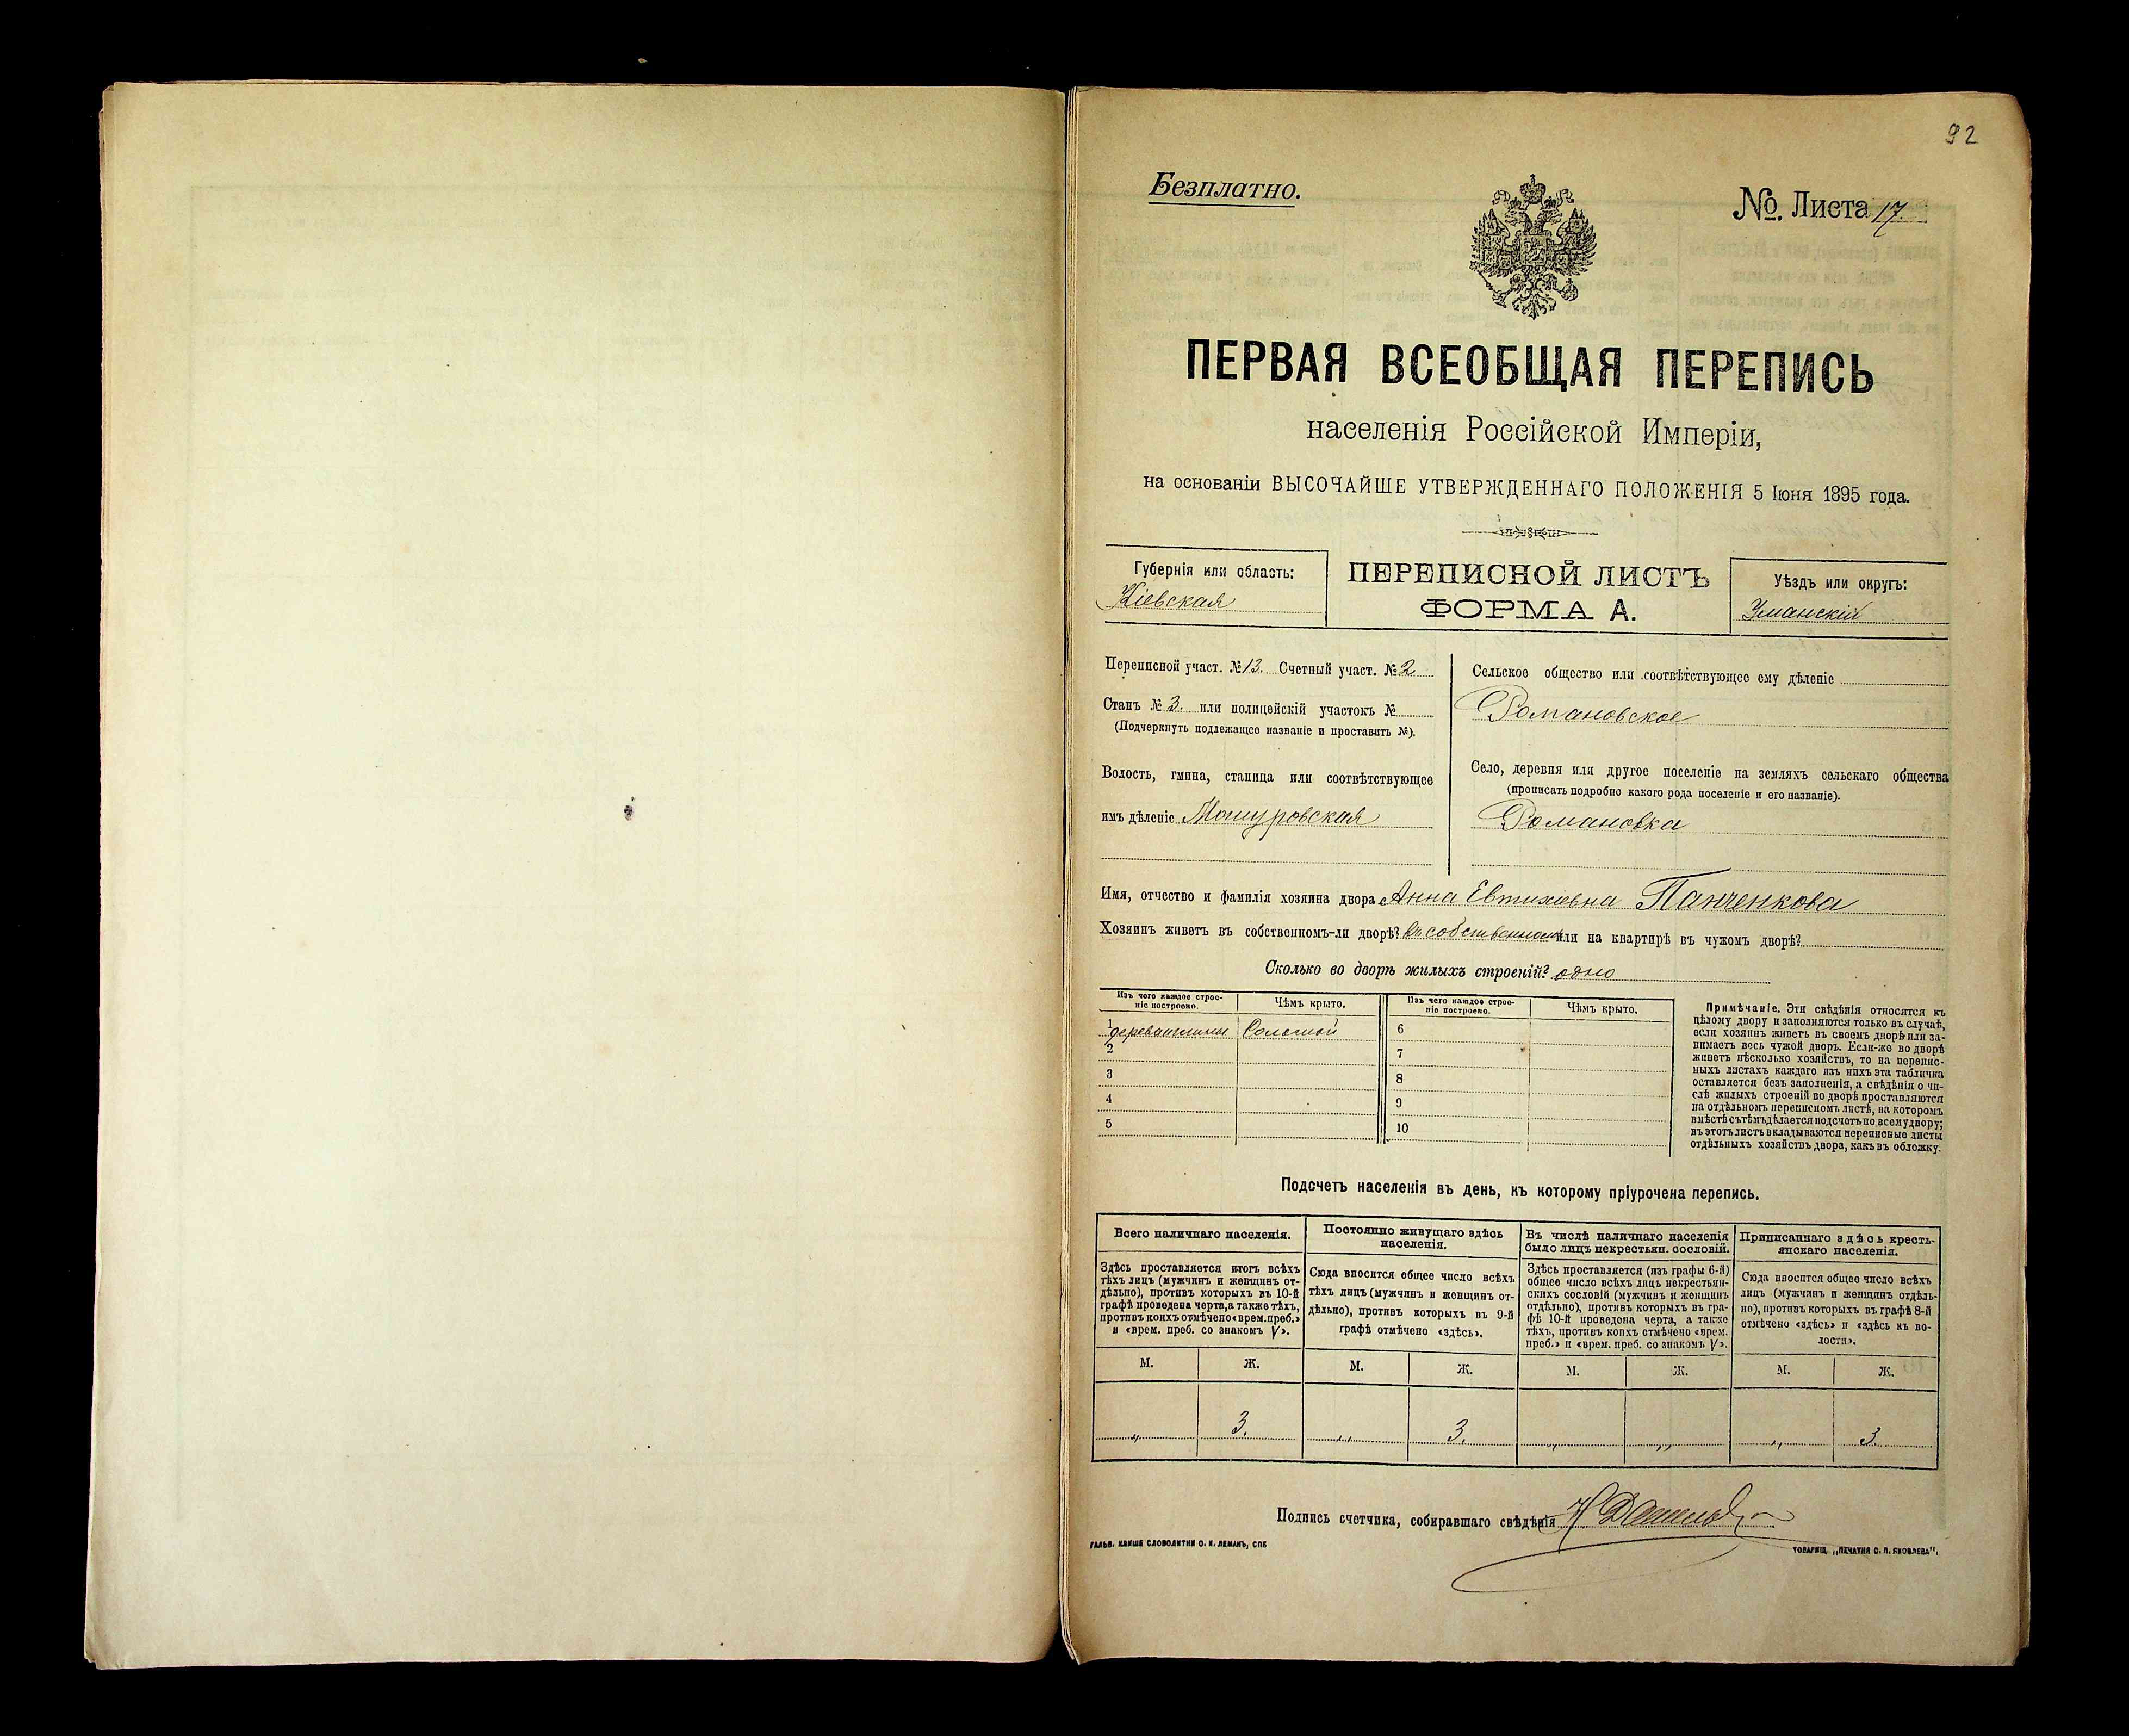 92
Безплатно.
№. Листа 17.
ПЕРВАЯ ВСЕОБЩАЯ ПЕРЕПИСЬ
населенія Россійской Имперіи,
на основаніи ВЫСОЧАЙШЕ УТВЕРЖДЕННАГО ПОЛОЖЕНІЯ 5 Іюня 1895 года.
Губернія или область:
Кіевская
ПЕРЕПИСНОЙ ЛИСТЪ
ФОРМА А.
Уѣздъ или округъ:
Уманскій
Переписной участ. № 13. Счетный участ. № 2
Станъ № 3. или полицейскій участокъ №
(Подчеркнуть подлежащее названіе и проставить №).
Волость, гмина, станица или соотвѣтствующее
имъ дѣленіе
Сельское общество или соотвѣтствующее ему дѣленіе
Романовское
Село, деревня или другое поселеніе на земляхъ сельскаго общества
(прописать подробно какого рода поселеніе и его названіе).
Романовка
Имя, отчество и фамилія хозяина двора Анна Евтихіевна Панченкова
Хозяинъ живетъ въ собственномъ-ли дворѣ? въ собственномъ или на квартирѣ въ чужомъ дворѣ?
Сколько во дворѣ жилыхъ строеній? одно
Изъ чего каждое строе-
ніе построено.
Чѣмъ крыто.
Изъ чего каждое строе-
ніе построено.
Чѣмъ крыто.
1
Соломой
6
2
7
3
8
4
9
5
10
Примѣчаніе. Эти свѣдѣнія относятся къ
цѣлому двору и заполняются только въ случаѣ,
если хозяинъ живетъ въ своемъ дворѣ или за-
нимаетъ весь чужой дворъ. Если-же во дворѣ
живетъ нѣсколько хозяйствъ, то на перепис-
ныхъ листахъ каждаго изъ нихъ эта табличка
оставляется безъ заполненія, а свѣдѣнія о чи-
слѣ жилыхъ строеній во дворѣ проставляются
на отдѣльномъ переписномъ листѣ, на которомъ
вмѣстѣ съ тѣмъ дѣлается подсчетъ по всему двору;
въ этотъ листъ вкладываются переписные листы
отдѣльныхъ хозяйствъ двора, какъ въ обложку.
Подсчетъ населенія въ день, къ которому пріурочена перепись.
Всего наличнаго населенія.
Здѣсь проставляется итогъ всѣхъ
тѣхъ лицъ (мужчинъ и женщинъ от-
дѣльно), противъ которыхъ въ 10-й
графѣ проведена черта, а также тѣхъ,
противъ коихъ отмѣчено «врем. преб.»
и «врем. преб. со знакомъ V».
Постоянно живущаго здѣсь
населенія.
Сюда вносится общее число всѣхъ
тѣхъ лицъ (мужчинъ и женщинъ от-
дѣльно), противъ которыхъ въ 9-й
графѣ отмѣчено «здѣсь».
Въ числѣ наличнаго населенія
было лицъ некрестьян. сословій.
Здѣсь проставляется (изъ графы 6-й)
общее число всѣхъ лицъ некрестьян-
скихъ сословій (мужчинъ и женщинъ
отдѣльно), противъ которыхъ въ гра-
фѣ 10-й проведена черта, а также
тѣхъ, противъ коихъ отмѣчено «врем.
преб.» и «врем. преб. со знакомъ V».
Приписаннаго здѣсь кресть-
янскаго населенія.
Сюда вносится общее число всѣхъ
лицъ (мужчинъ и женщинъ отдѣль-
но), противъ которыхъ въ графѣ 8-й
отмѣчено «здѣсь» и «здѣсь къ во-
лости».
М. Ж. М. Ж. М. Ж. М. Ж.
„ 3. „ 3. „ „ „ 3.
Подпись счетчика, собиравшаго свѣдѣнія
ГАЛЬВ. КЛИШЕ СЛОВОЛИТНИ О. И. ЛЕМАНЪ, СПБ
ТОВАРИЩ. „ПЕЧАТНЯ С. П. ЯКОВЛЕВА".